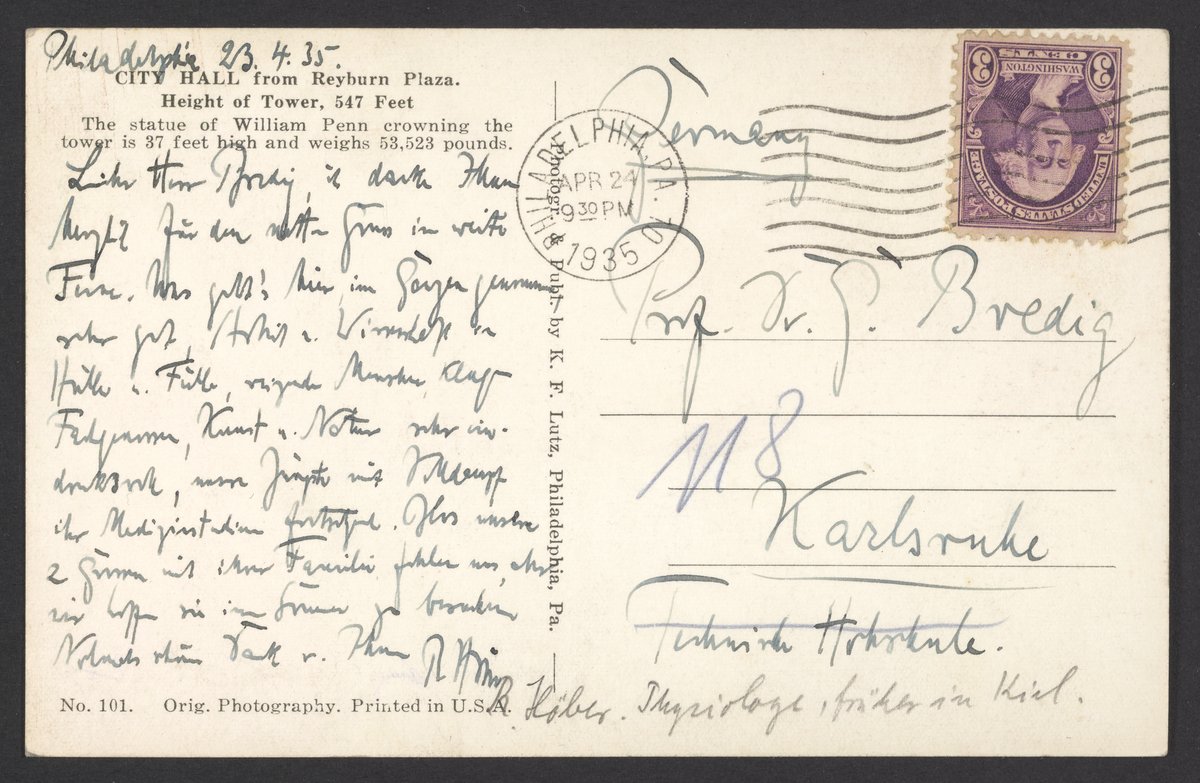 Philadelphia 23. 4. 35.
CITY HALL from Reyburn Plaza.
Height of Tower, 547 Feet
The statue of William Penn crowning the
tower is 37 feet high and weighs 53,523 pounds.
Lieber Herr Bredig, ich danke Ihnen
herzl. für den netten Gruss in weite
Ferne. Uns geht's hier im Ganzen genommen
sehr gut, Arbeit u. Wissenschaft in
Hülle u. Fülle, reizende Menschen,
Fachgenossen, Kunst u. Natur sehr ein-
drucksvoll, unsere Jüngste mit Volldampf
ihr Medizinstudium fortsetzend. Blos unsere
2 Grossen mit ihrer Familie fehlen uns, aber
wir hoffen sie im Sommer zu besuchen
Nochmals schönen Dank v. Ihrem R Höber
No. 101. Orig. Photography. Printed in U.S.A.
Photogr. & Publ. by K. F. Lutz, Philadelphia, Pa.
PHILADELPHIA, PA.
APR 24
9 30 PM
1935
UNITED STATES POSTAGE
WASHINGTON
3 CENTS 3
Germany
Prof. Dr. G. Bredig
118
Karlsruhe
Technische Hochschule.
R. Höber. Physiologe, früher in Kiel.